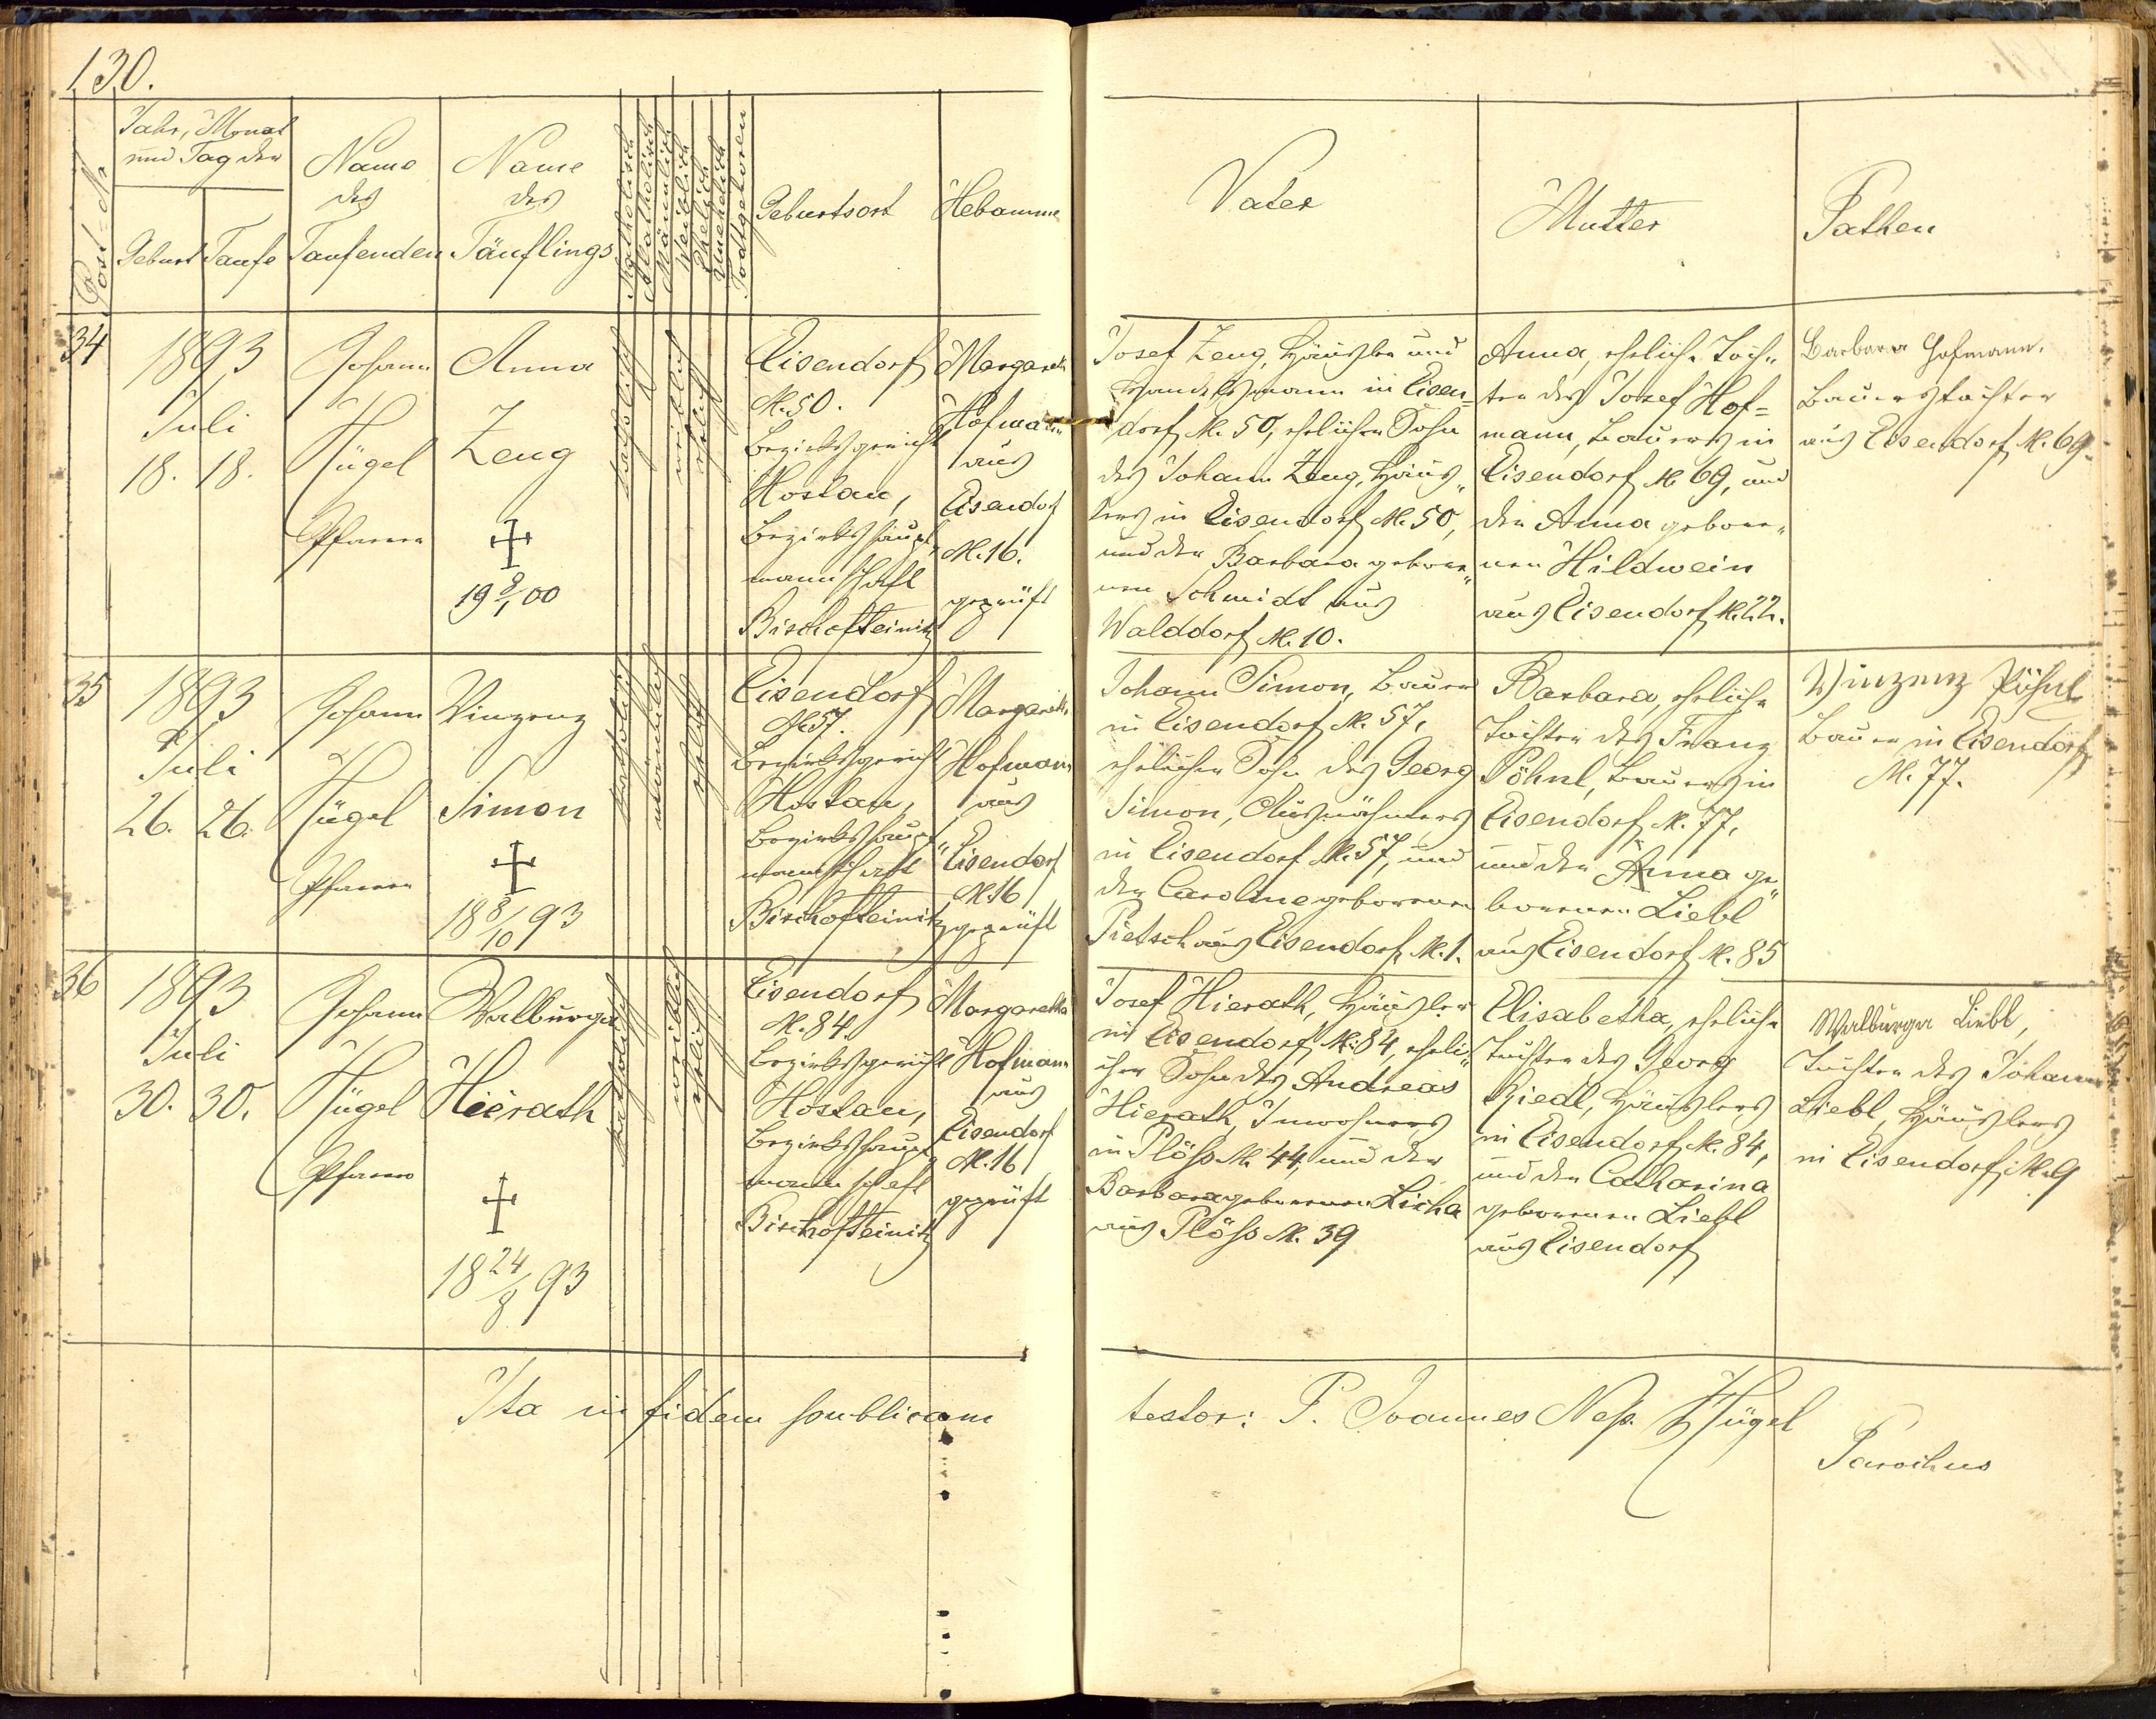 130.
Post-Nr
Jahr, Monat
und Tag der
Geburt
Taufe
Name
des
Taufenden
Name
des
Täuflings
Katholisch
Akatholisch
Männlich
Weiblich
Ehelich
Unehelich
Todtgeboren
Geburtsort
Hebamme
Vater
Mutter
Pathen
34
1893
Juli
18. 18.
Johann
Hügel
Pfarrer
Anna
Zeug
†
19 9/1 00
katholisch
weiblich
ehelich
Eisendorf
N. 50.
Bezirksgericht
Hostau,
Bezirkshaupt„
mannschaft
Bischofteinitz
Margareth
Hofmann
aus
Eisendorf
N. 16.
geprüft
Josef Zeug, Häusler und
Handelsmann in Eisen=
dorf N. 50, ehelicher Sohn
des Johann Zeug, Häus„
lers in Eisendorf N. 50,
und der Barbara gebore„
nen Schmidt aus
Walddorf N. 10.
Anna, eheliche Toch„
ter des Josef Hof=
mann, Bauers in
Eisendorf N 69, und
der Anna gebore„
nen Hildwein
aus Eisendorf N. 22.
Barbara Hofmann,
Bauerstochter
aus Eisendorf N. 69.
35
1893
Juli
26. 26.
Johann
Hügel
Pfarrer
Vinzenz
Simon
†
18 8/10 93
katholisch
männlich
ehelich
Eisendorf
N 57.
Bezirksgericht
Hostau,
Bezirkshaupt„
mannschaft
Bischofteinitz
Margareth
Hofmann
aus
Eisendorf
N. 16
geprüft
Johann Simon, Bauer
in Eisendorf N. 57,
ehelicher Sohn des Georg
Simon, Ausnöhmers
in Eisendorf N. 57, und
der Caroline geborenen
Pietsch aus Eisendorf N. 1.
Barbara, eheliche
Tochter des Franz
Pöhnl, Bauers in
Eisendorf N. 77,
und der Anna ge„
borenen Liebl
aus Eisendorf N. 85
Vinzenz Pöhnl
Bauer in Eisendorf
N. 77.
36
1893
Juli
30. 30.
Johann
Hügel
Pfarrer
Walburga
Hierath
†
18 24/8 93
katholisch
weiblich
ehelich
Eisendorf
N. 84.
Bezirksgericht
Hostau,
Bezirkshaupt„
mannschaft
Bischofteinitz
Margaretha
Hofmann
aus
Eisendorf
N. 16
geprüft
Josef Hierath, Häusler
in Eisendorf N. 84, eheli„
cher Sohn des Andreas
Hierath, Inwohners
in Plöss N. 44, und der
Barbara geborenen Licha
aus Plöss N. 39
Elisabetha, eheliche
Tochter des Georg
Riedl, Häuslers
in Eisendorf N. 84,
und der Catharina
geborenen Liebl
aus Eisendorf
Walburga Liebl,
Tochter des Johann
Liebl, Häuslers
in Eisendorf N. 9
Ita in fidem publicam testor: P. Joannes Nep. Hügel
Parochus